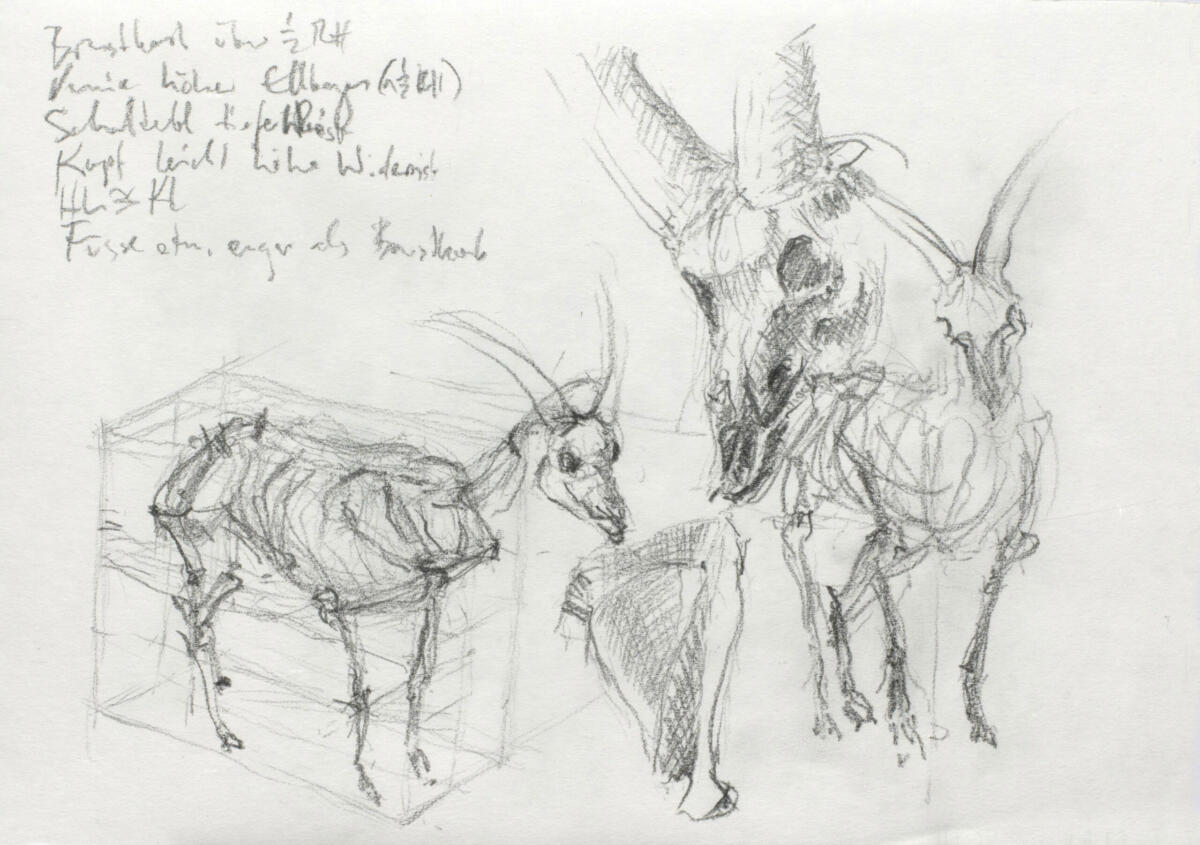 Brustkorb über ½ RH
Knie höher Ellbogen (½ RH)
Schulterbl tiefer
Kopf leicht höher Widerrist
HL ≥ KL
Füsse etw. enger als Brustkorb